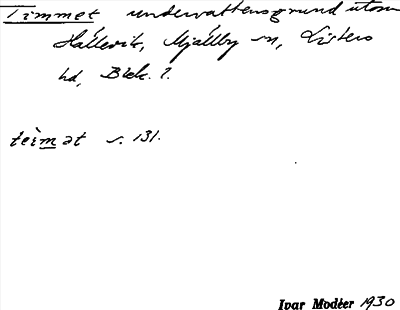 Timmet undervattensgrund utom
Hällevik, Mjällby sn, Listers
hd, Blek. l.
teìmət s. 131.
Ivar Modéer 1930